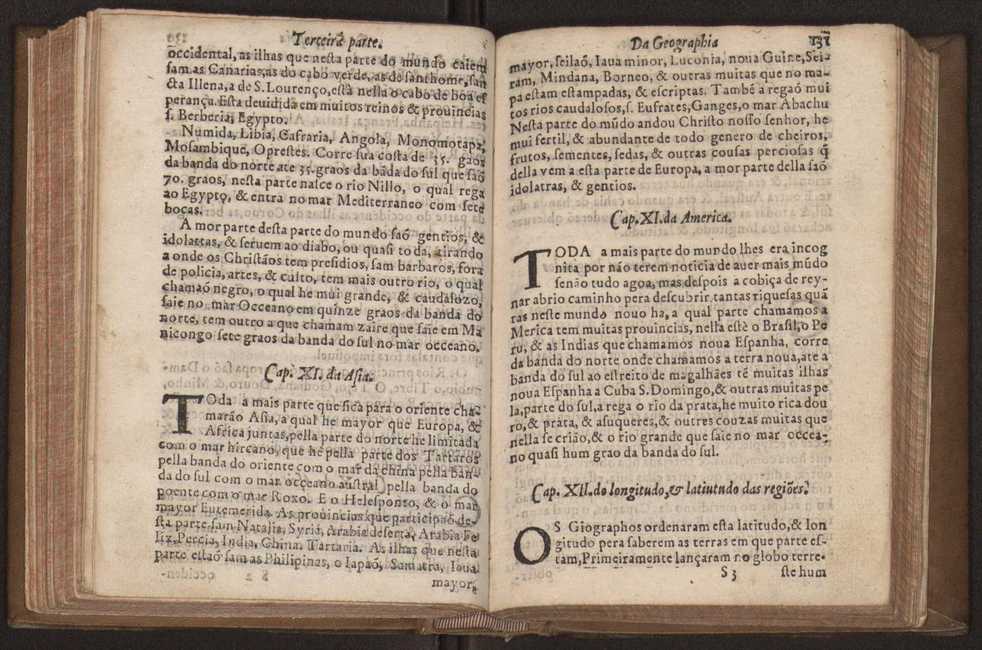 Terceira parte.
occidental, as ilhas que nesta parte do mundo caiem
sam as Canarias, as do cabo verde, as de santhome, san
cta Illena, a de S. Lourenço, está nella o cabo de boa es
perança. Esta deuidida em muitos reinos & prouincias
s. Berberia, Egypto.
Numida, Libia, Cafraria, Angola, Monomotapa,
Mosambique, Oprestes. Corre sua costa de 35. graos
da banda do norte ate 35. graos da bãda do sul que saõ
70. graos, nesta parte nasce o rio Nillo, o qual rega
ao Egypto, & entra no mar Mediterraneo com sete
bocas.
A mor parte desta parte do mundo saõ gentios, &
idolattas, & seruem ao diabo, ou quasi toda, tirando
a onde os Christãos tem presidios, sam barbaros, fora
de policia, artes, & culto, tem mais outro rio, o qual
chamaõ negro, o qual he mui grande, & caudalozo,
saie no mar Occeano em quinze graos da banda do
norte, tem outro a que chamam zaire que saie em Ma
nicongo sete graos da banda do sul no mar occeano.
Cap. XI. da Asia.
TOda a mais parte que fica pàra o oriente cha
marão Asia, a qual he mayor que Europa, &
Africa juntas, pella parte do norte he limitada
com o mar hircano, que he pella parte dos Tartaros
pella banda do oriente com o mar da china pella ban-
da do sul com o mar occeano austral, pella banda do
poente com o mar Roxo. E o Helesponto, & o mar
mayor Eutemerida. As prouincias que participaõ de-
sta parte sam Natalia, Syria, Arabia deserta, Arabia Fe
lix, Percia, India, China, Tartaria. As ilhas que nesta
parte estaõ sam as Philipinas, o Iapaõ, Samatra, Iaua
mayor,
Da Geographia 131
mayor, seilaõ, Iaua minor, Luconia, noua Guine, Sei-
ram, Mindana, Borneo, & outras muitas que no ma-
pa estam estampadas, & escriptas. Tambẽ a regaõ mui
tos rios caudalosos, s. Eufrates, Ganges, o mar Abachu
Nesta parte do mũdo andou Christo nosso senhor, he
mui fertil, & abundante de todo genero de cheiros,
frutos, sementes, sedas, & outras cousas perciosas q̃
della vem a esta parte de Europa, a mor parte della saõ
idolatras, & gentios.
Cap. XI. da America.
TODA a mais parte do mundo lhes era incog
nita por não terem noticia de auer mais mũdo
senão tudo agoa, mas despois a cobiça de rey-
nar abrio caminho pera descubrir tantas riquesas quã
tas neste mundo nouo ha, a qual parte chamamos a
Merica tem muitas prouincias, nella estè o Brasil, o Pe
ru, & as Indias que chamamos noua Espanha, corre
da banda do norte onde chamamos a terra noua, ate a
banda do sul ao estreito de magalhães tẽ muitas ilhas
noua Espanha a Cuba S. Domingo, & outras muitas pe
la, parte do sul, a rega o rio da prata, he muito rica dou
ro, & prata, & asuqueres, & outres couzas muitas que
nella se crião, & o rio grande que saie no mar occea-
no quasi hum grao da banda do sul.
Cap. XII. do longitudo, & latiutudo das regiões.
OS Giographos ordenaram esta latitudo, & lon
gitudo pera saberem as terras em que parte es-
tam, Primeiramente lançaram no globo terre-
S 3 ste hum